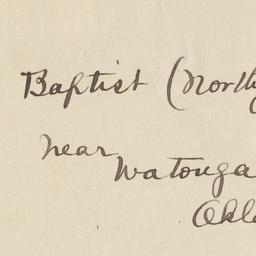 Baptist (North
near
Watonga
Okla